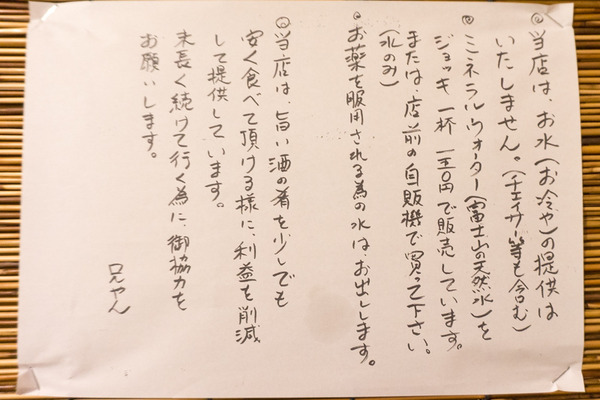 ◎当店は、お水(お冷や)の提供は
いたしません。(チェイサー等も含む)
◎ミネラルウォーター(富士山の天然水)を
ジョッキ一杯 一五〇円で販売しています。
または、店前の自販機で買って下さい。
(水のみ)
◦お薬を服用される為の水は、お出しします。
◎当店は、旨い酒の肴を少しでも
安く食べて頂ける様に、利益を削減
して提供しています。
末長く続けて行く為に、御協力を
お願いします。
兄やん